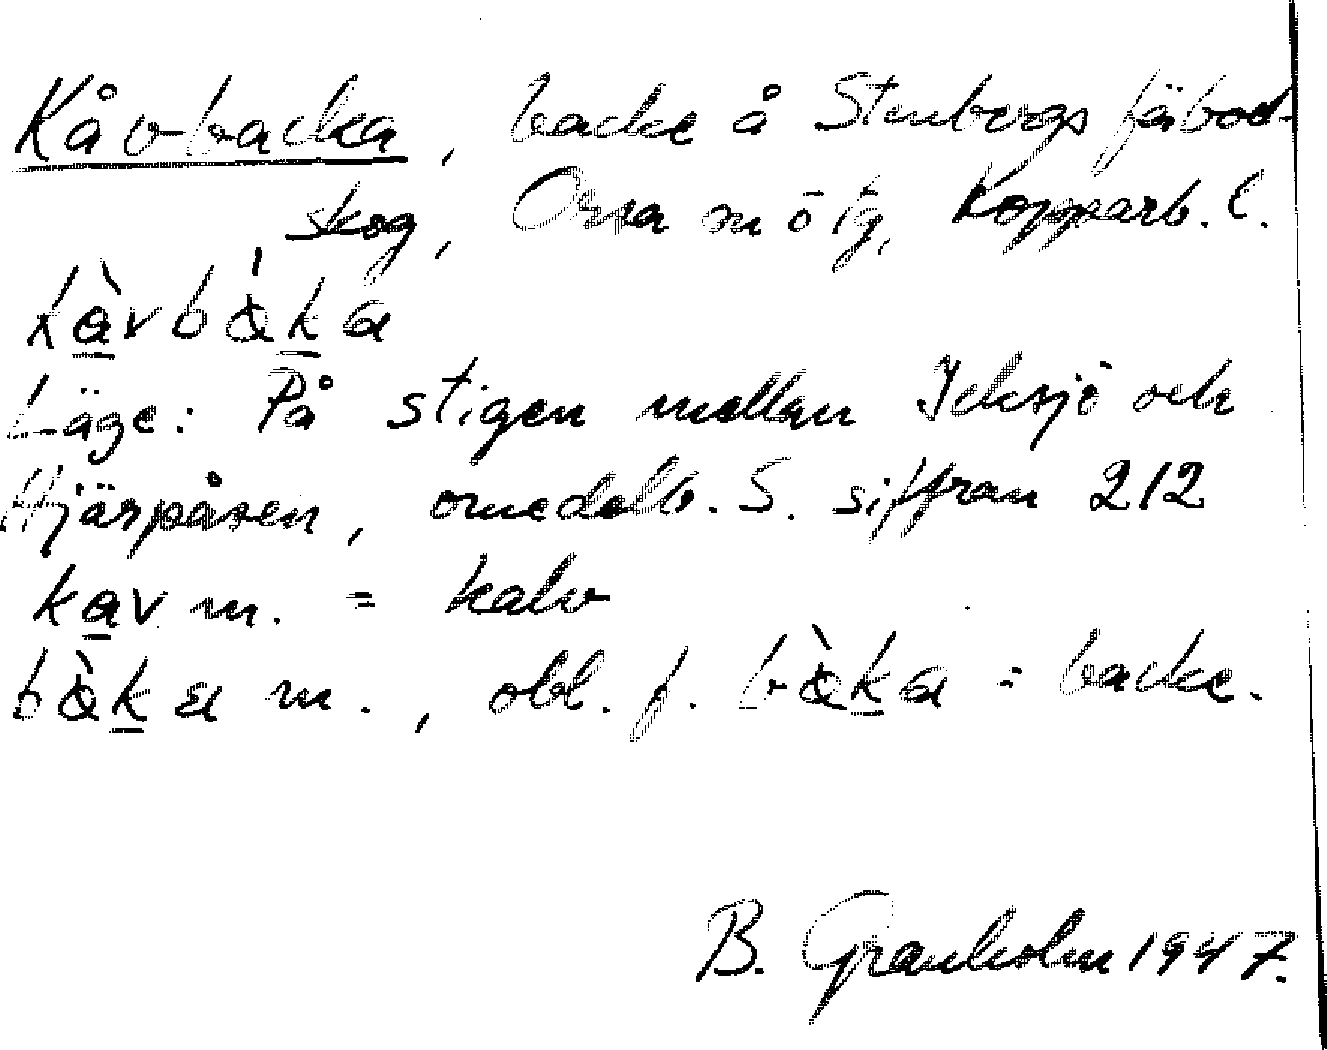 Kåvbacka, backe å Stenbergs fäbod-
skog, Orsa m o tg, Kopparb. l.
kàvbàka
Läge: På stigen mellan Icksjö och
Hjärpåsen, omedelb. S. siffran 212
kav m. = kalv
bàka m., obl. f. bàka = backe.
B. Granholm 1947.